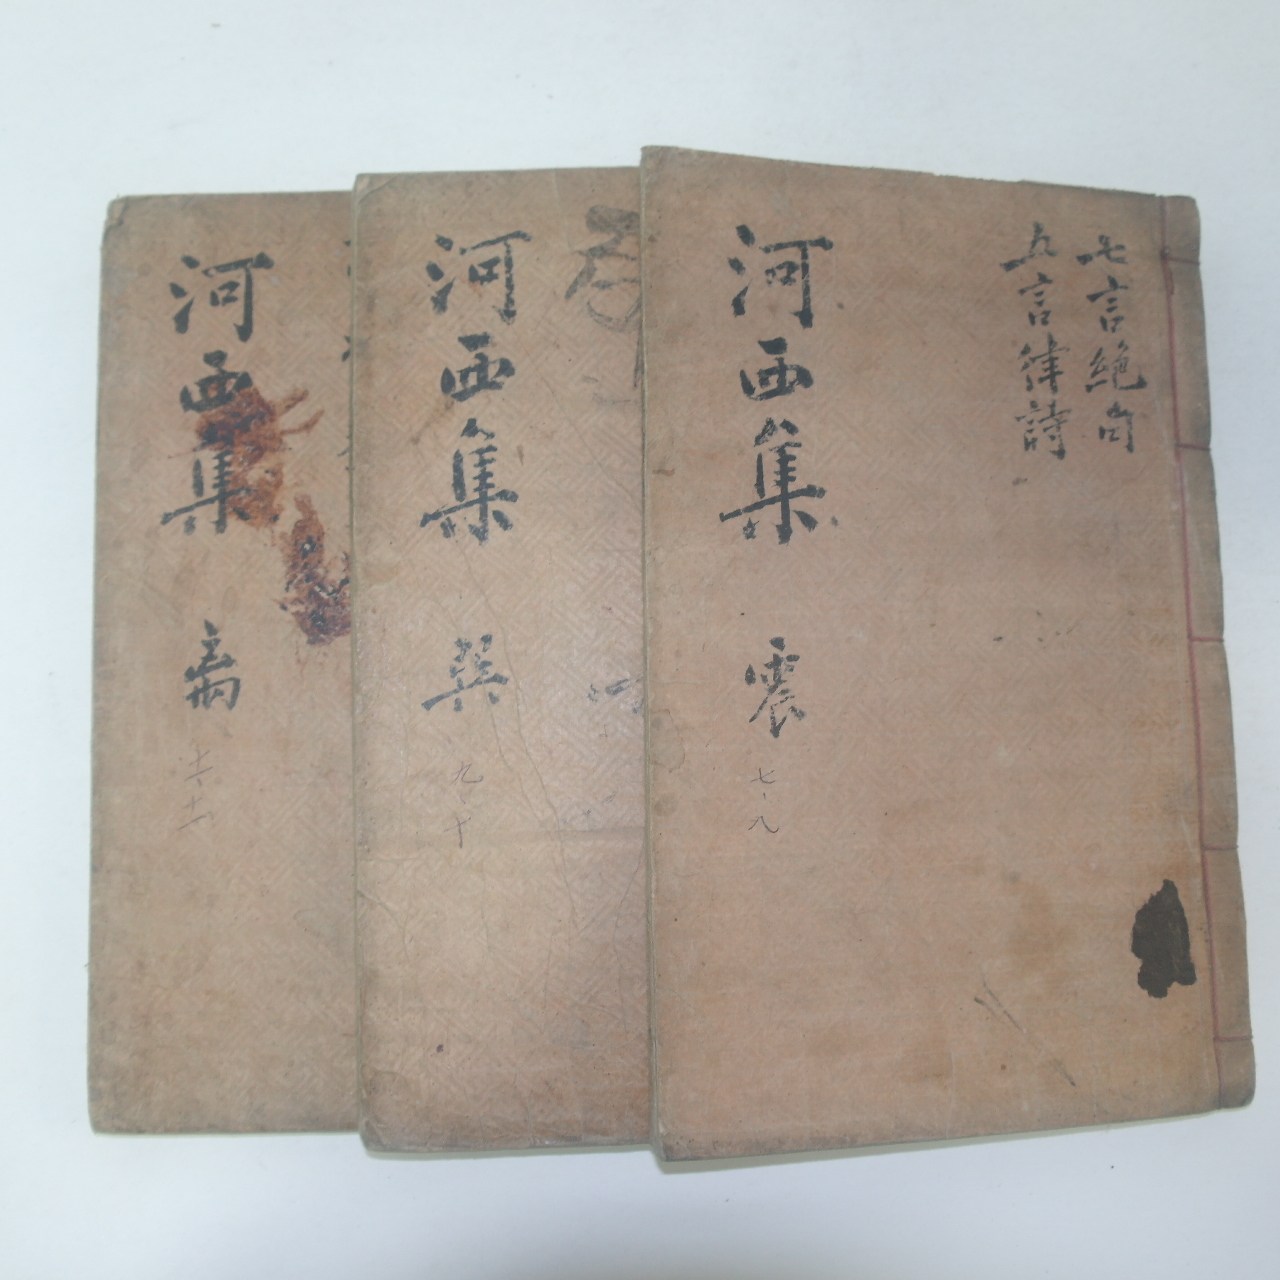 七言絶句
五言律詩
河西集 震
七、八
河西集 巽
九、十
河西集 离